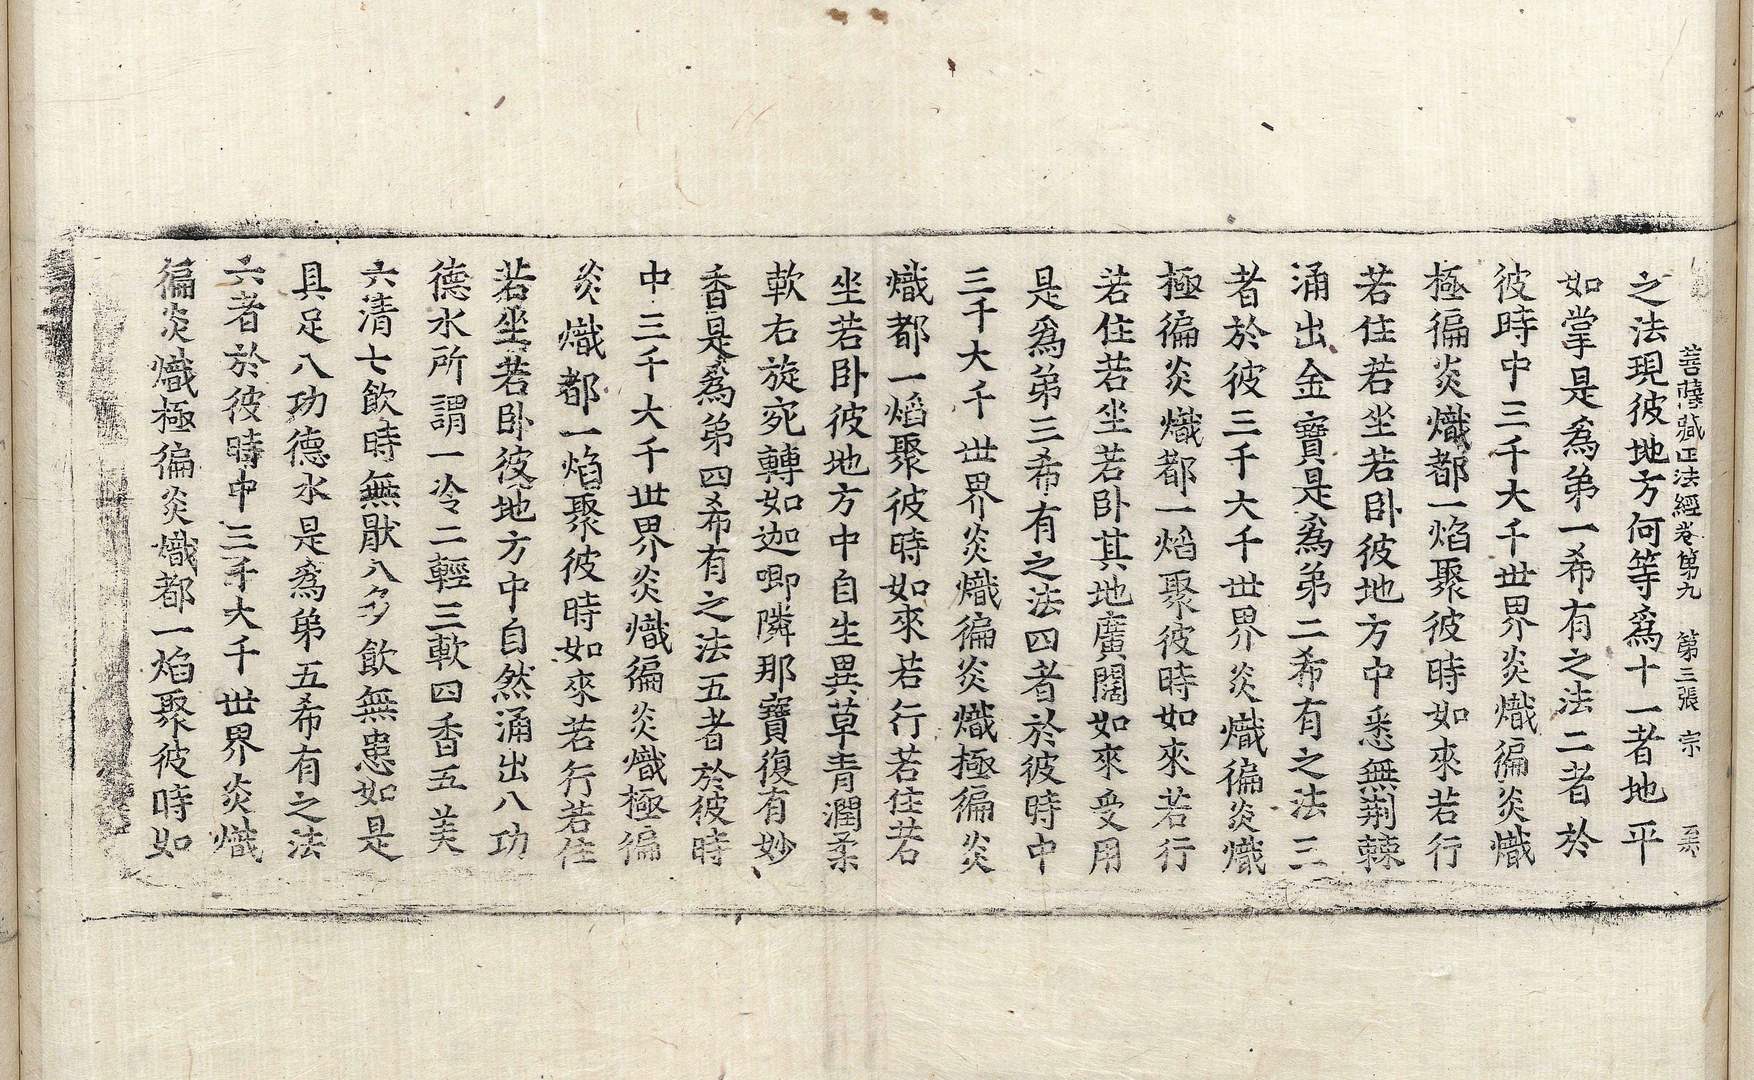 菩薩藏正法經卷第九 第三張 宗
之法現彼地方何等爲十一者地平
如掌是爲第一希有之法二者於
彼時中三千大千世界炎熾徧炎熾
極徧炎熾都一焰聚彼時如來若行
若住若坐若卧彼地方中悉無荆棘
涌出金寶是爲第二希有之法三
者於彼三千大千世界炎熾徧炎熾
極徧炎熾都一焰聚彼時如來若行
若住若坐若卧其地廣闊如來受用
是爲第三希有之法四者於彼時中
三千大千世界炎熾徧炎熾極徧炎
熾都一焰聚彼時如來若行若住若
坐若卧彼地方中自生異草青潤柔
軟右旋宛轉如迦唧隣那寶復有妙
香是爲第四希有之法五者於彼時
中三千大千世界炎熾徧炎熾極徧
炎熾都一焰聚彼時如來若行若住
若坐若卧彼地方中自然涌出八功
德水所謂一冷二輕三軟四香五美
六清七飲時無猒八多飲無患如是
具足八功德水是爲第五希有之法
六者於彼時中三千大千世界炎熾
徧炎熾極徧炎熾都一焰聚彼時如